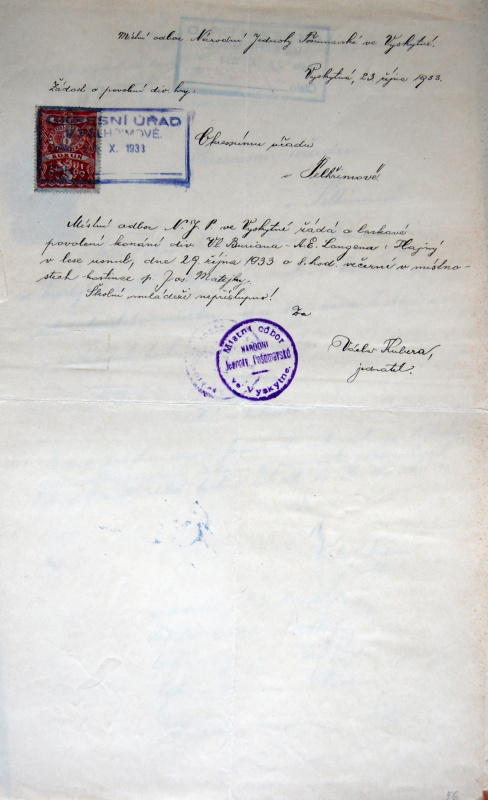 Místní odbor Národní Jednoty Pošumavské ve Vyskytné.
Vyskytná, 23. října 1933.
Žádost o povolení div. hry.
OKRESNÍ ÚŘAD
V PELHŘIMOVĚ
X. 1933
Okresnímu úřadu
Pelhřimově
Místní odbor N. J. P. ve Vyskytné žádá o laskavé
povolení konání div. Vl. Buriana - A. E. Longena: Hajný
v lese usnul, dne 29. října 1933 o 8. hod. večerní v místno-
stech hostince p. Jos. Matějky.
Školní mládeži nepřístupno!
Za
Místní odbor
NÁRODNÍ
Jednoty Pošumavské
ve Vyskytné.
Václav Kubera,
jednatel.